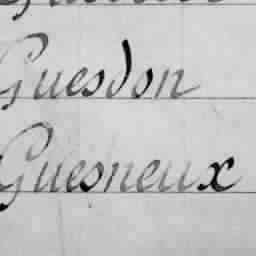 Guesdon
Guesneux